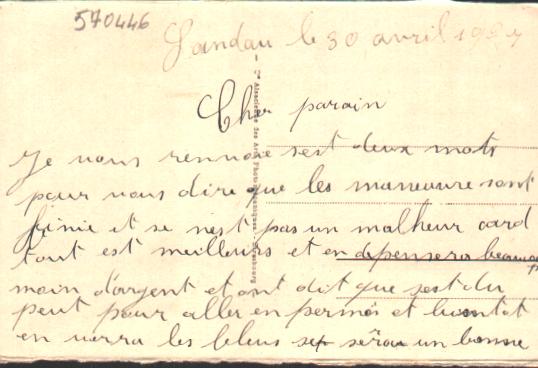 570446
Landau le 30 avril 1927
Cher parain
Je vous rennoie sest deux mots
pour vous dire que les maneuvre sont
finie et se nest pas un malheur card
tout est meilleurs et en depensera beaucoup
moin d'argent et ont dit que sest du
peut pour aller en permes et bientot
en verra les bleus set serau un bonne
Cie Alsacienne des Arts Photomécaniques, Strasbourg